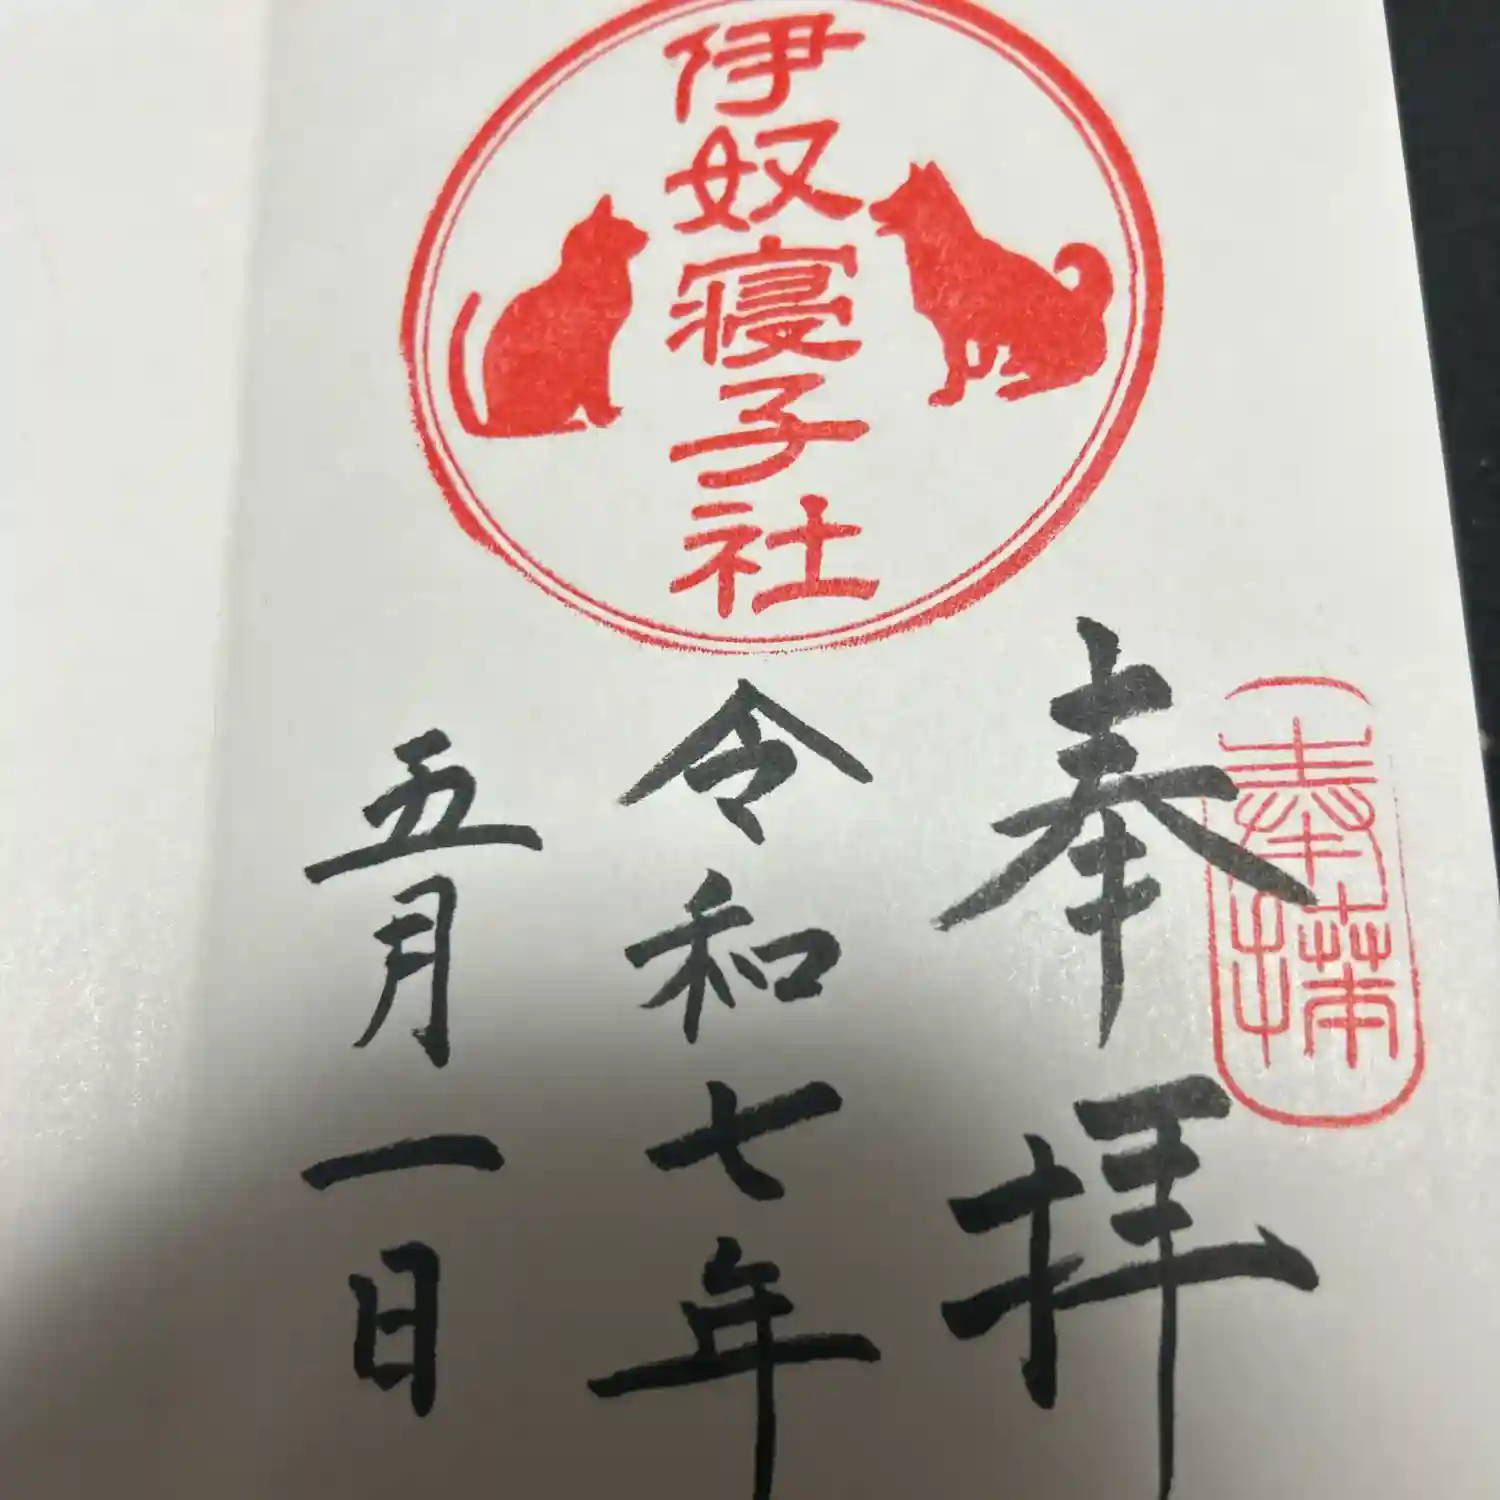 伊奴寝子社
奉拝
奉拝
令和七年
五月一日